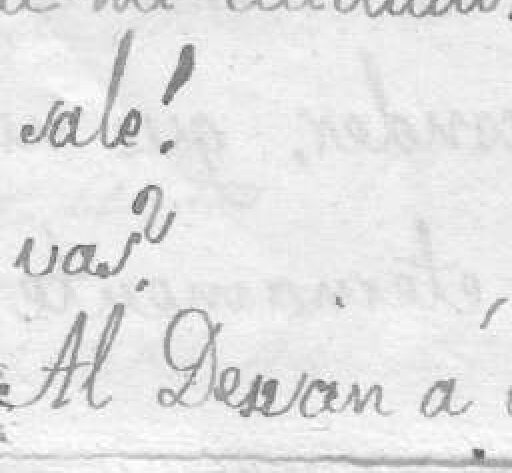 sale!
vas?
Al Desván á